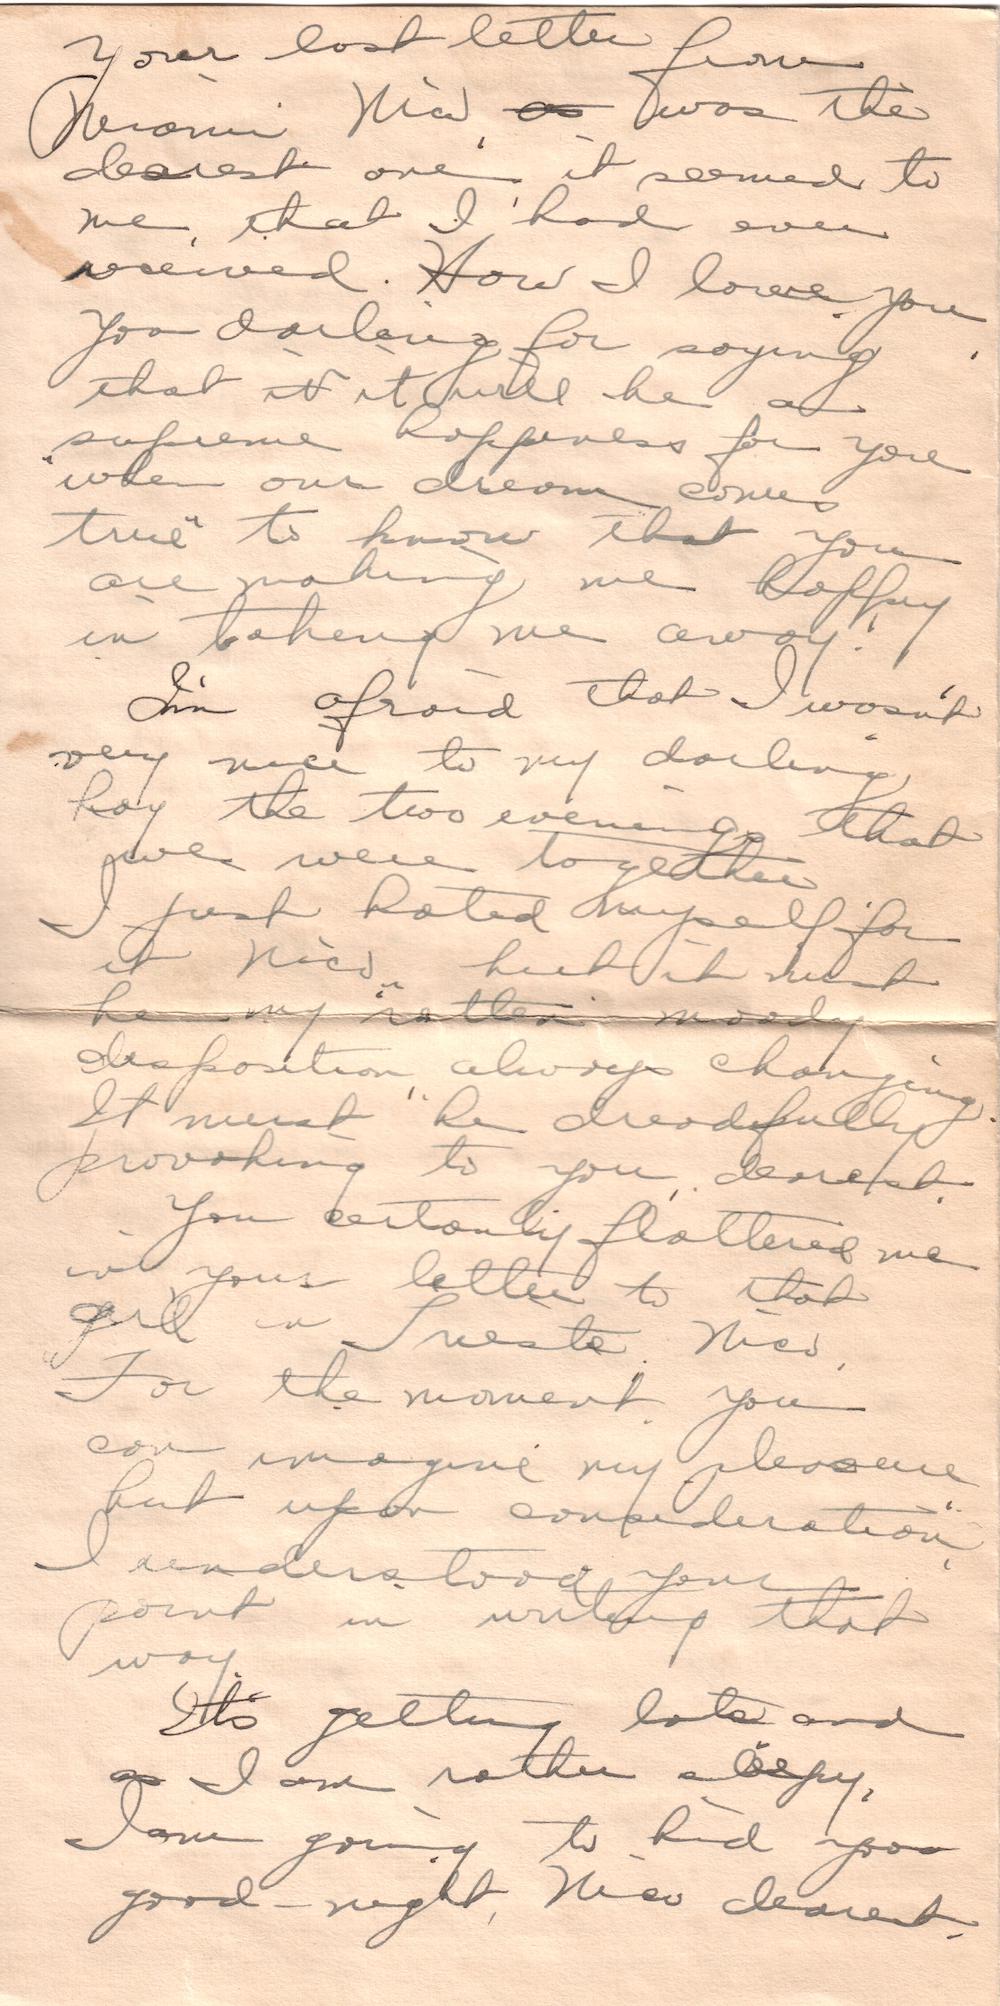 Your last letter from
Miami Nico, as was the
dearest one, it seemed to
me, that I had ever
received. How I love you
you darling for saying
that it it will be a
supreme happiness for you
"when our dream comes
true" to know that you
are making me happy
in taking me away!
I'm afraid that I wasn't
very nice to my darling
boy the two evenings that
we were together
I just hated myself for
it Nico, but it must
be my "rotten moody
disposition, always changing.
It must be dreadfully
provoking to you, dearest.
You certainly flattered me
in your letter to that
girl in Trieste, Nico.
For the moment, you
can imagine my pleasure
but upon consideration,
I understood your
point in writing that
way.
It's getting late and
as I am rather sleepy,
I am going to bid you
good-night, Nico dearest.